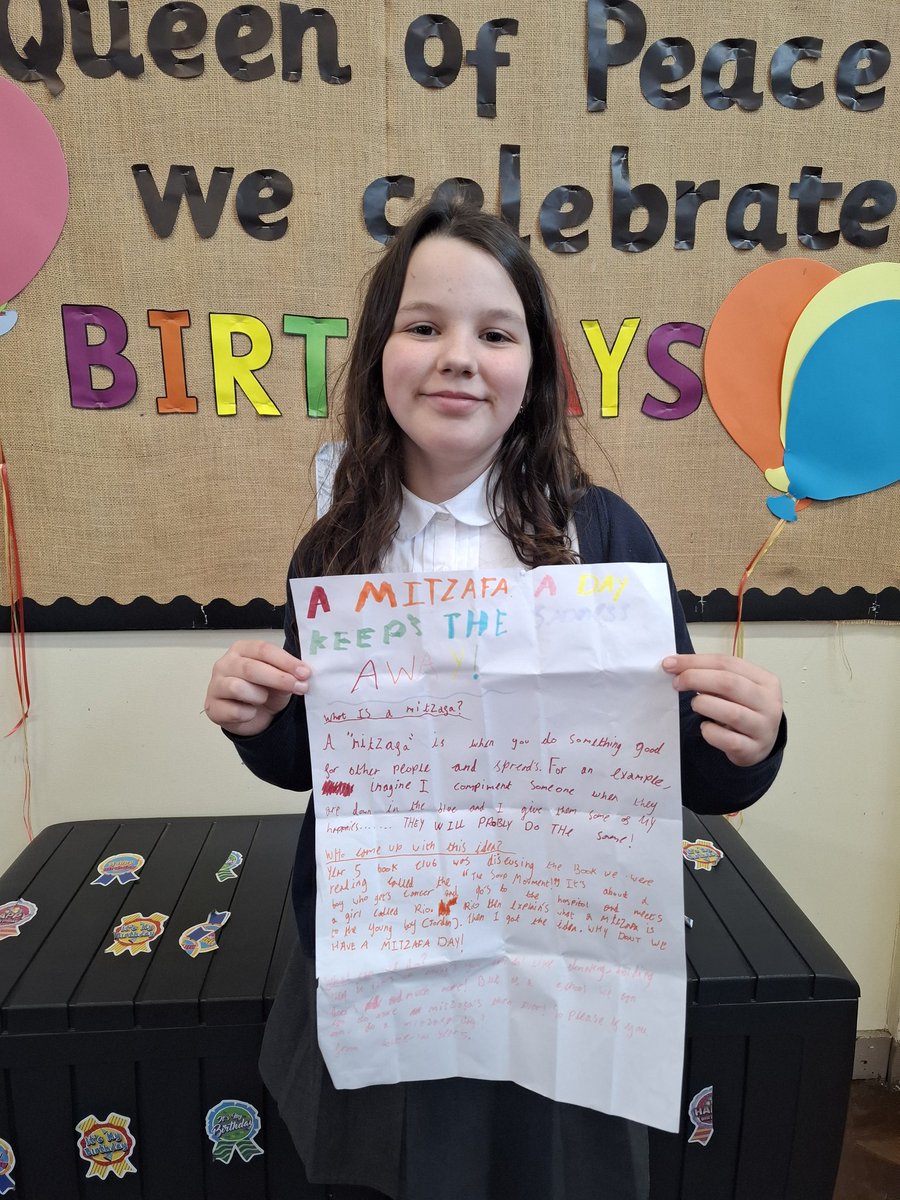 Queen of Peace
we celebrate
BIRT YS
A MITZAFA A DAY
KEEPS THE SADNESS
AWAY!
What Is a mitzaga?
A "mitzaga" is when you do something good
for other people and spreads. For an example,
imagine I compiment someone when they
are down in the blue and I give them some of My
happies....... THEY WILL PROBLY DO THE same!
WHo came up with this idea?
Year 5 book club was discusing the Book we were
reading called the "The Soap Movment!" It's about a
boy who get's cancer and go's to the hospital and meets
a girl called Rio. Rio then explain's what a MITZAFA is
to the young boy (Jordan). Then I got the idea. WHY DON'T WE
HAVE A MITZAFA DAY!
do?
and much more! But as a school we can
do mitzaga's please if you
do a
from
It's My Birthday
It's My Birthday